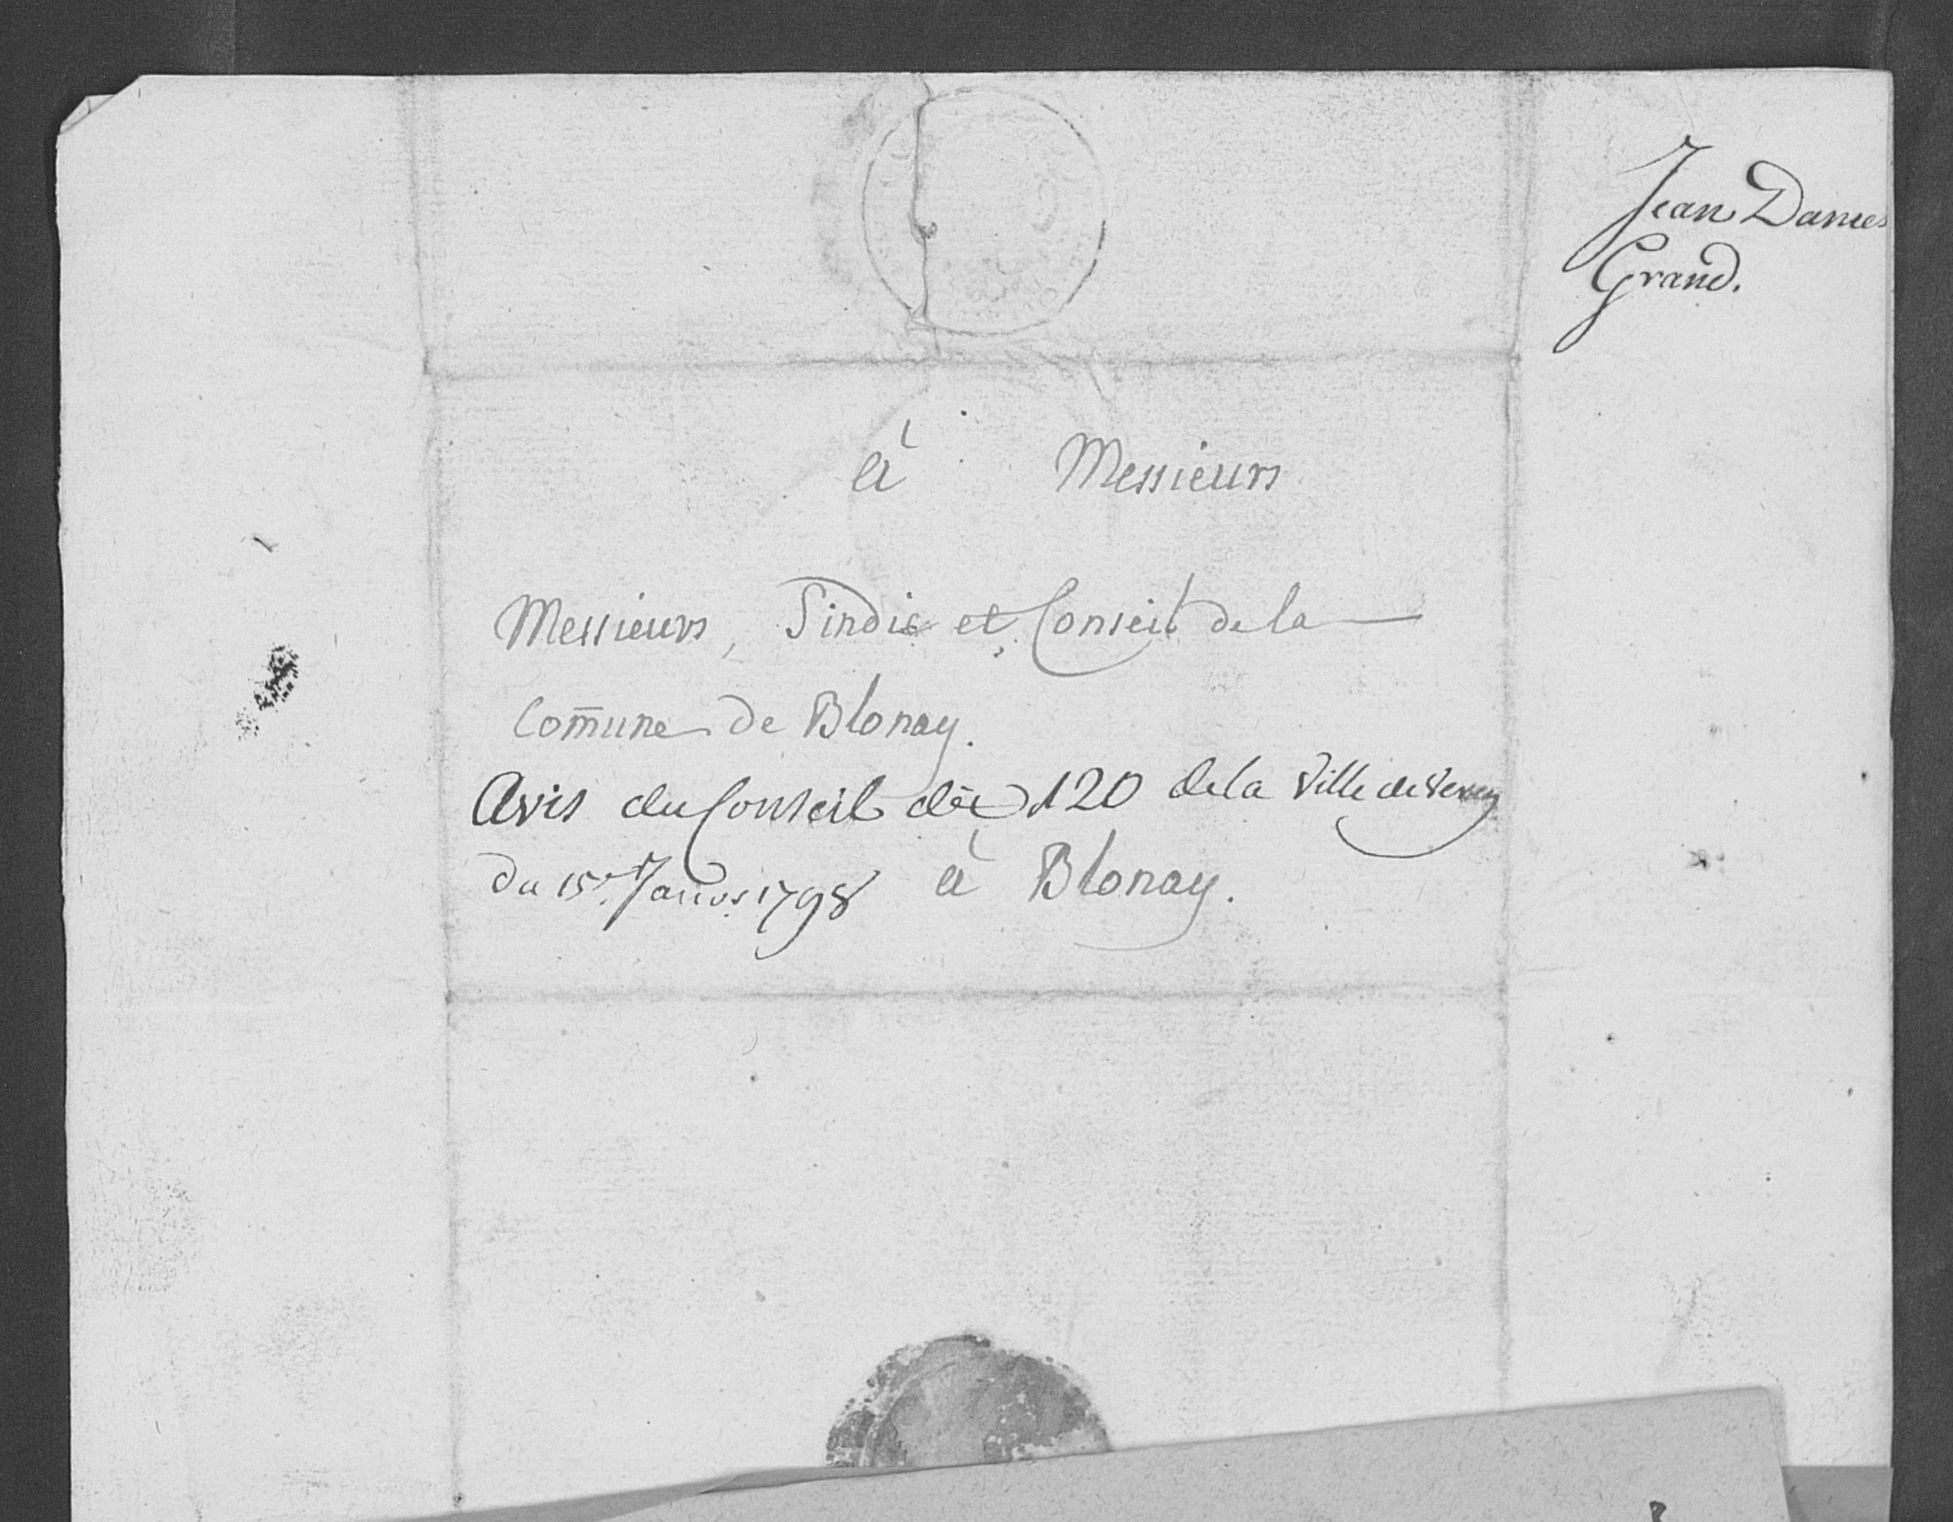 Jean Daniel
Grand.
à Messieurs
Messieurs, Sindic et Conseil de la
Com̅une de Blonay.
Avis du Conseil des 120 de la Ville de Vevey
du 15e. Janvr. 1798
à Blonay.